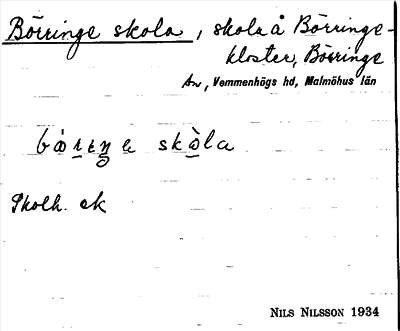 Börringe skola, skola å Börringe-
kloster, Börringe
Av, Vemmenhögs hd, Malmöhus län
skòla
Skolh. ek
NILS NILSSON 1934